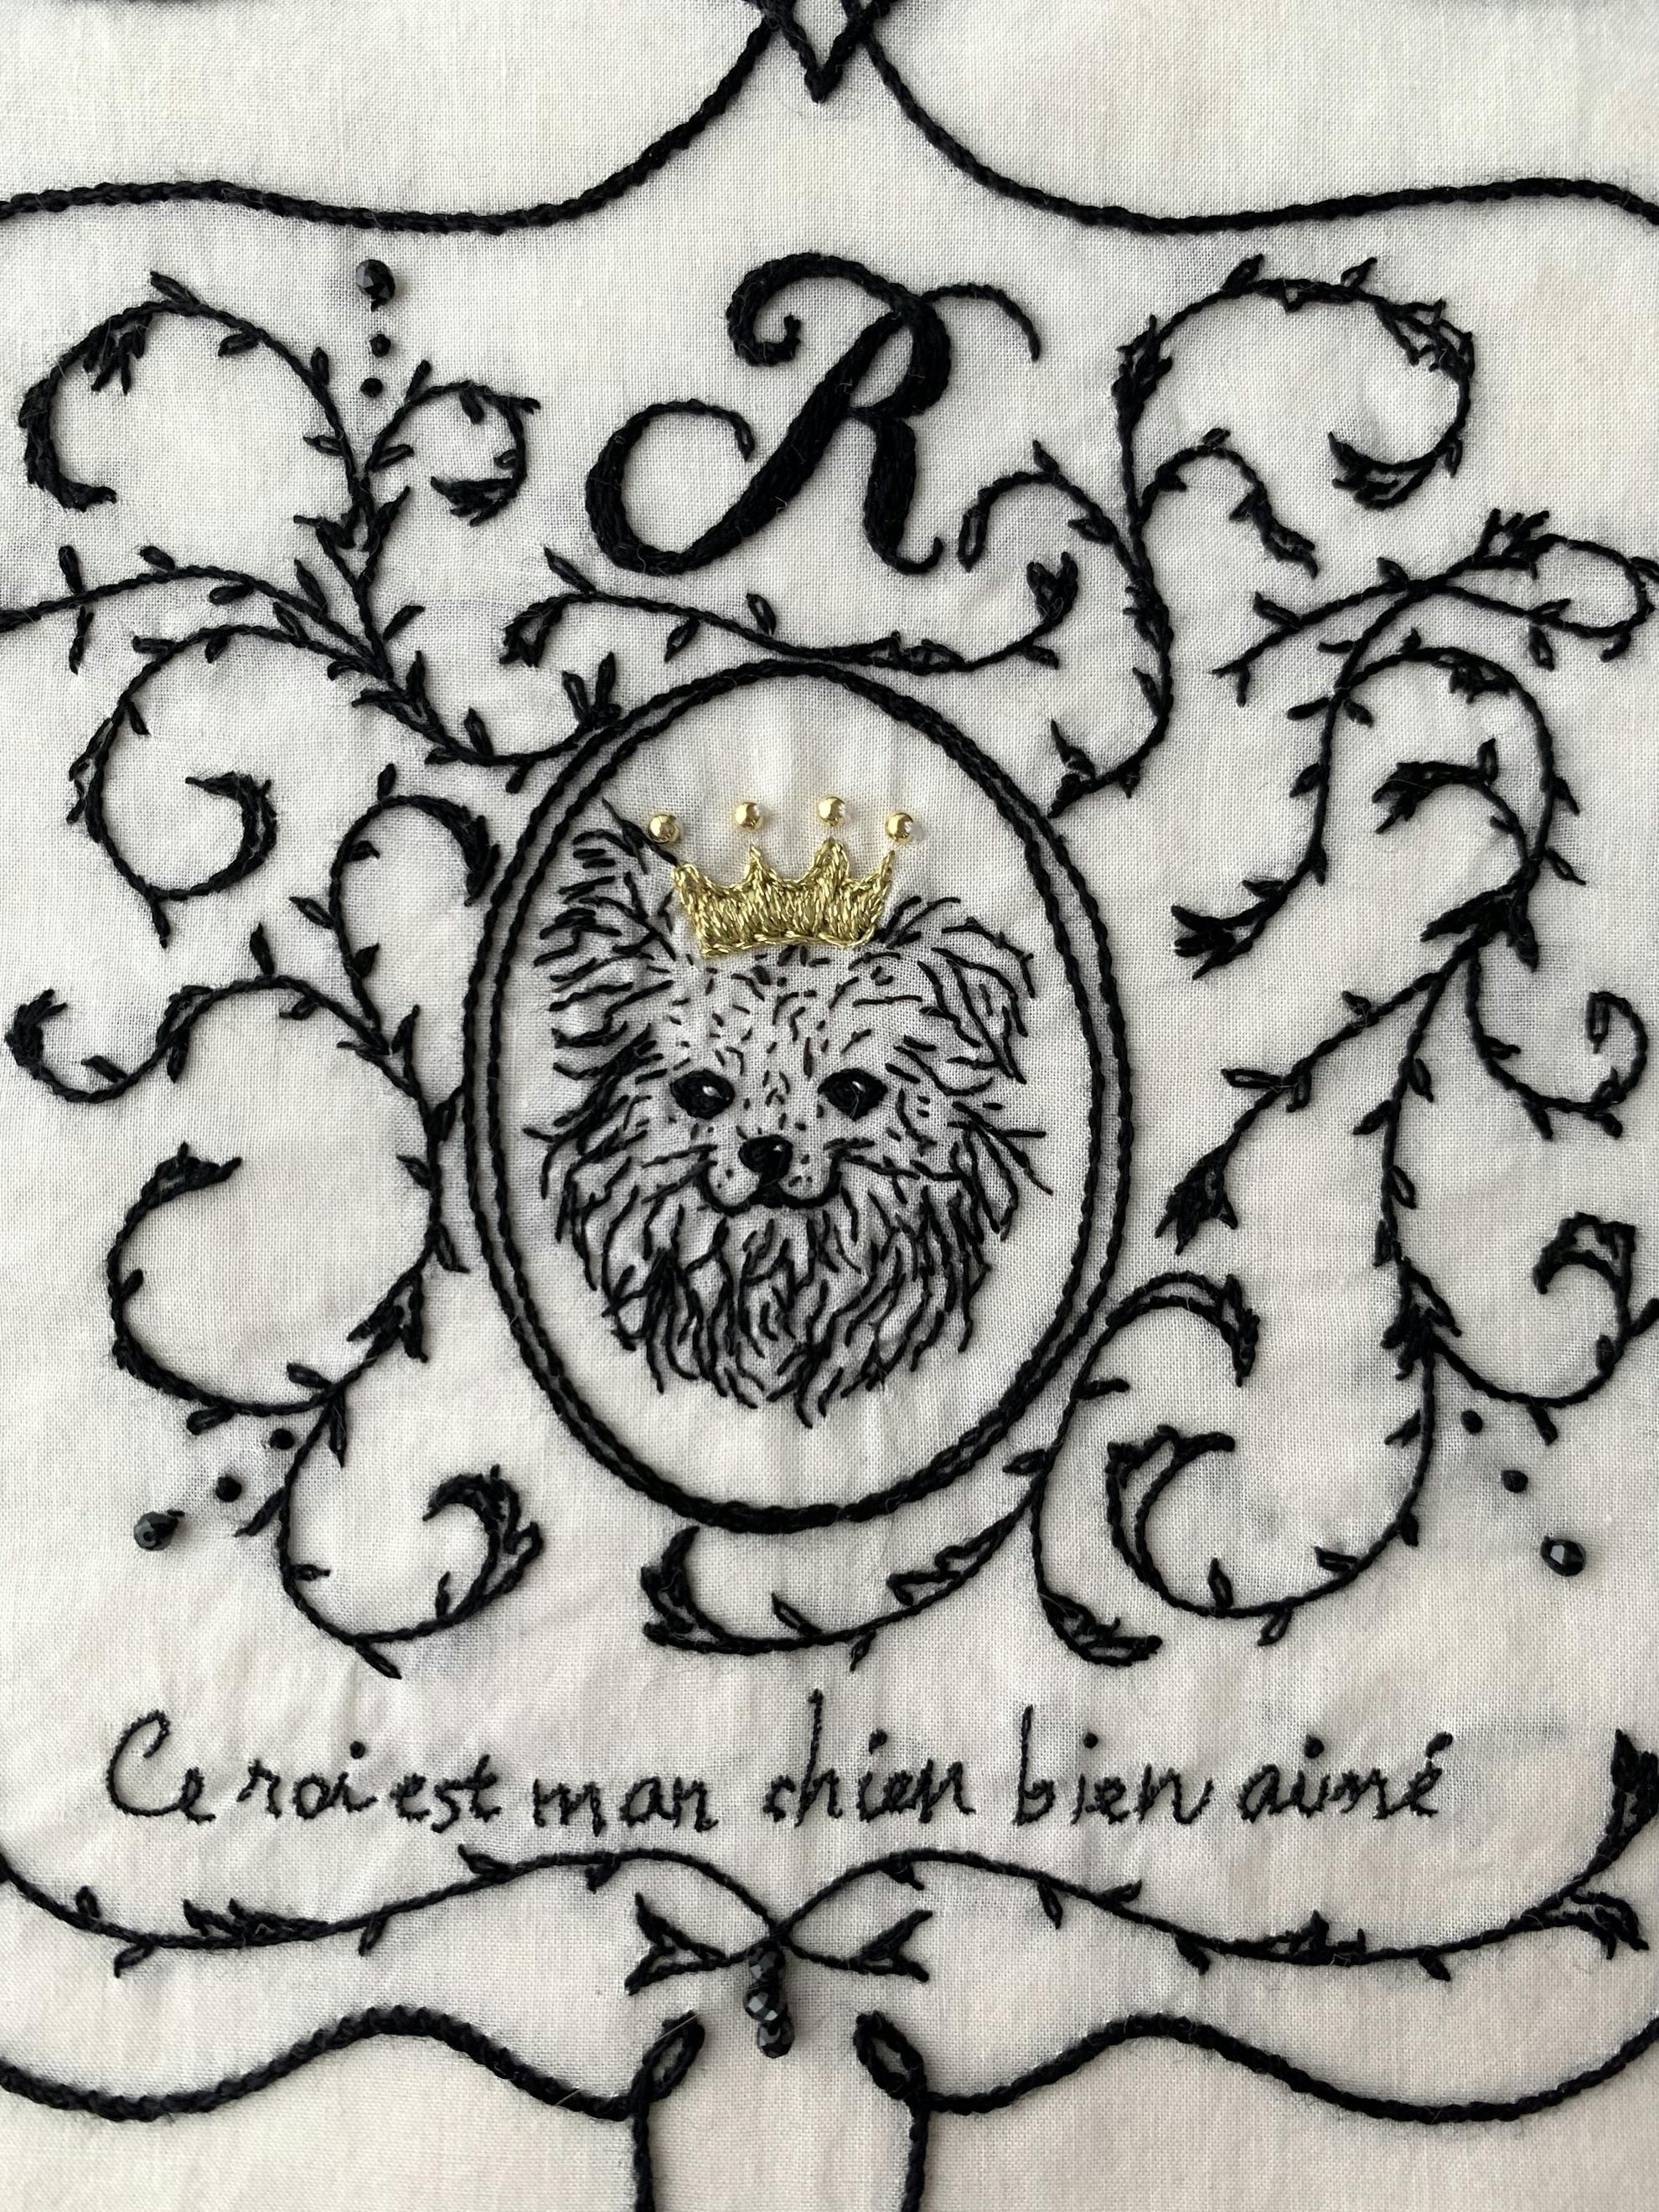 R
Ce roi est mon chien bien aimé